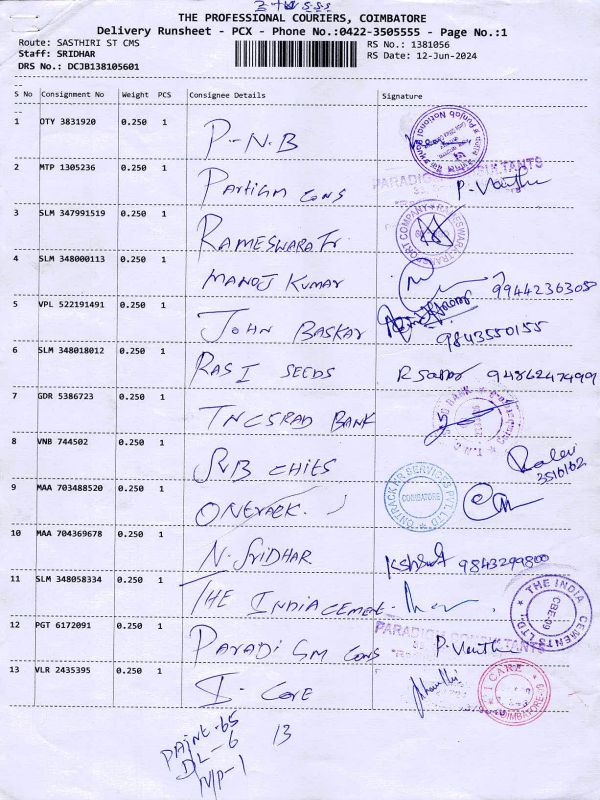 THE PROFESSIONAL COURIERS, COIMBATORE
Delivery Runsheet - PCX - Phone No.:0422-3505555 - Page No.:1
Route: SASTHIRI ST CMS RS No.: 1381056
Staff: SRIDHAR RS Date: 12-Jun-2024
DRS No.: DCJB138105601
S No Consignment No Weight PCS Consignee Details Signature
1 OTY 3831920 0.250 1 P-N.B Punjab National
2 MTP 1305236 0.250 1 Cons PARADIGM CONSULTANTS
3 SLM 347991519 0.250 1 RAMESWARA Tr
4 SLM 348000113 0.250 1 MANOJ KUMAR
5 VPL 522191491 0.250 1 JOHN BASKAR 9843550155
6 SLM 348018012 0.250 1 RASI SEEDS
7 GDR 5386723 0.250 1 BANK
8 VNB 744502 0.250 1 CHITS 3516162
9 MAA 703488520 0.250 1 ONTRACK HR SERVICES PVT. LTD COIMBATORE
10 MAA 704369678 0.250 1 N. SRIDHAR 9843299800
11 SLM 348058334 0.250 1 THE INDIA CEMENT THE INDIA CEMENTS LTD. CBE-09
12 PGT 6172091 0.250 1 Cons PARADIGM CONSULTANTS
13 VLR 2435395 0.250 1 I-Care I CARE COIMBATORE
13
DL-6
N/P-1